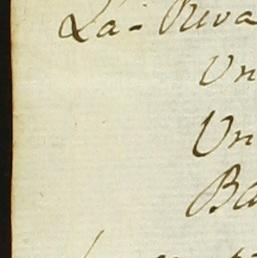 La-Riva
Un
Un
Ba